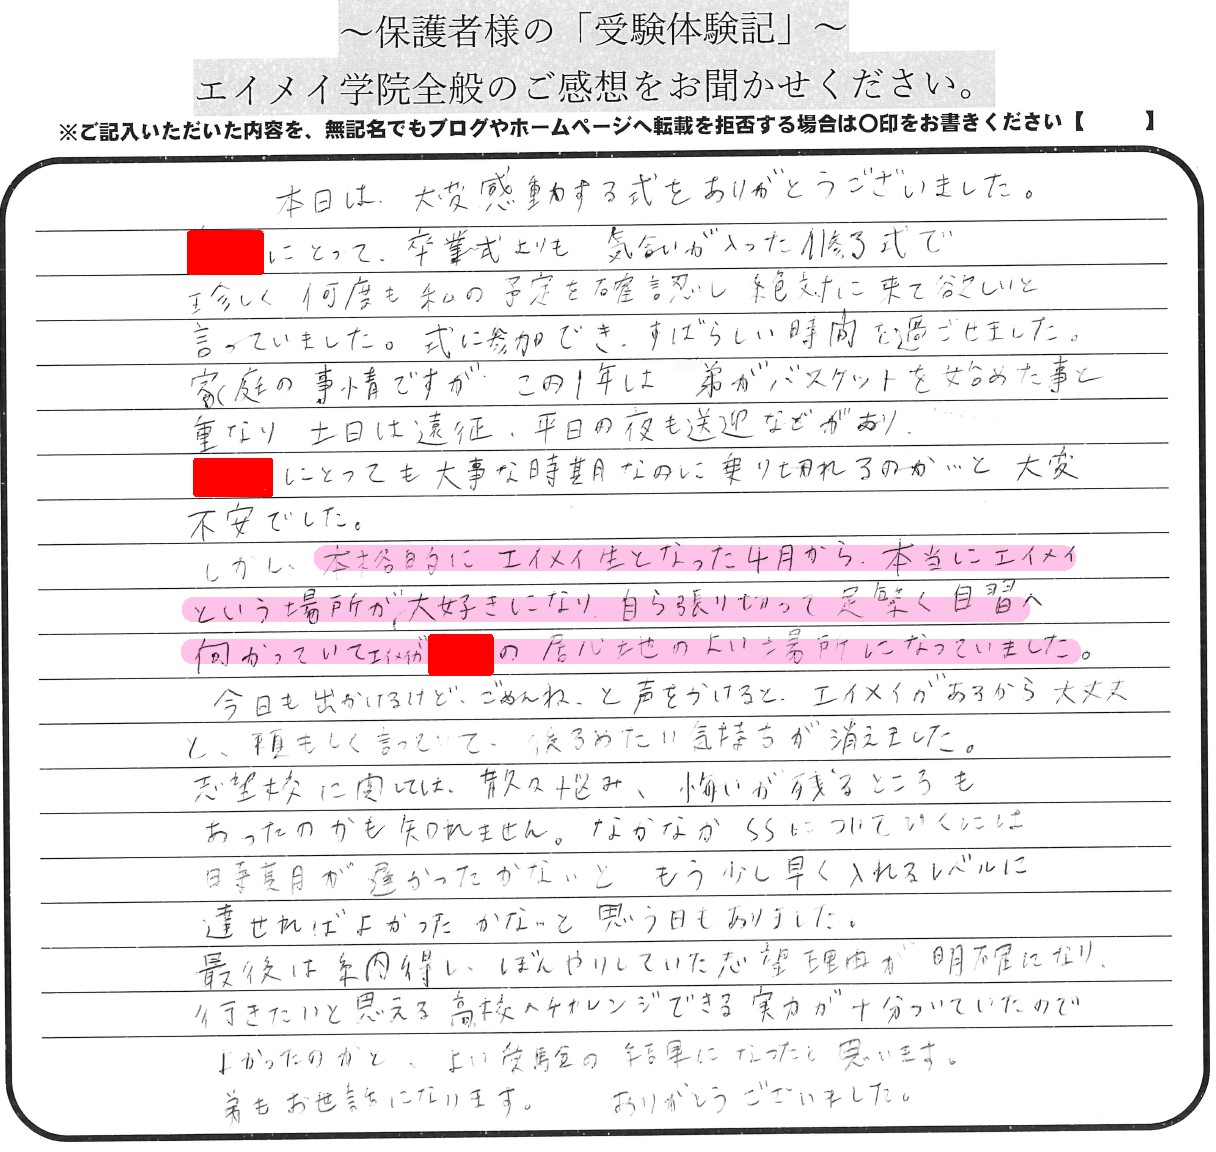 ～保護者様の「受験体験記」～
エイメイ学院全般のご感想をお聞かせください。
※ご記入いただいた内容を、無記名でもブログやホームページへ転載を拒否する場合は〇印をお書きください【　　】
本日は、大変感動する式をありがとうございました。
にとって、卒業式よりも 気合いが入った修了式で
珍しく 何度も私の予定を確認し 絶対に来て欲しいと
言っていました。式に参加でき、すばらしい時間を過ごせました。
家庭の事情ですが この1年は 弟がバスケットを始めた事と
重なり 土日は遠征、平日の夜も送迎などがあり、
にとっても大事な時期なのに乗り切れるのか…と 大変
不安でした。
しかし、本格的に エイメイ生となった4月から、本当にエイメイ
という場所が大好きになり、自ら張り切って足繁く自習へ
向かっていてエイメイが の 居心地のよい場所になっていました。
今日も出かけるけど、ごめんね、と声をかけると、エイメイがあるから大丈夫
と、頼もしく言っていて、後ろめたい気持ちが消えました。
志望校に関しては、散々悩み、悔いが残るところも
あったのかも知れません。なかなかSSについていくには
時期が遅かったかな…と もう少し早く入れるレベルに
達せればよかったかな…と思う日もありました。
最後は納得し、ぼんやりしていた志望理由が明確になり、
行きたいと思える高校へチャレンジできる実力が十分ついていたので
よかったのかと、よい受験の結果になったと思います。
弟もお世話になります。 ありがとうございました。